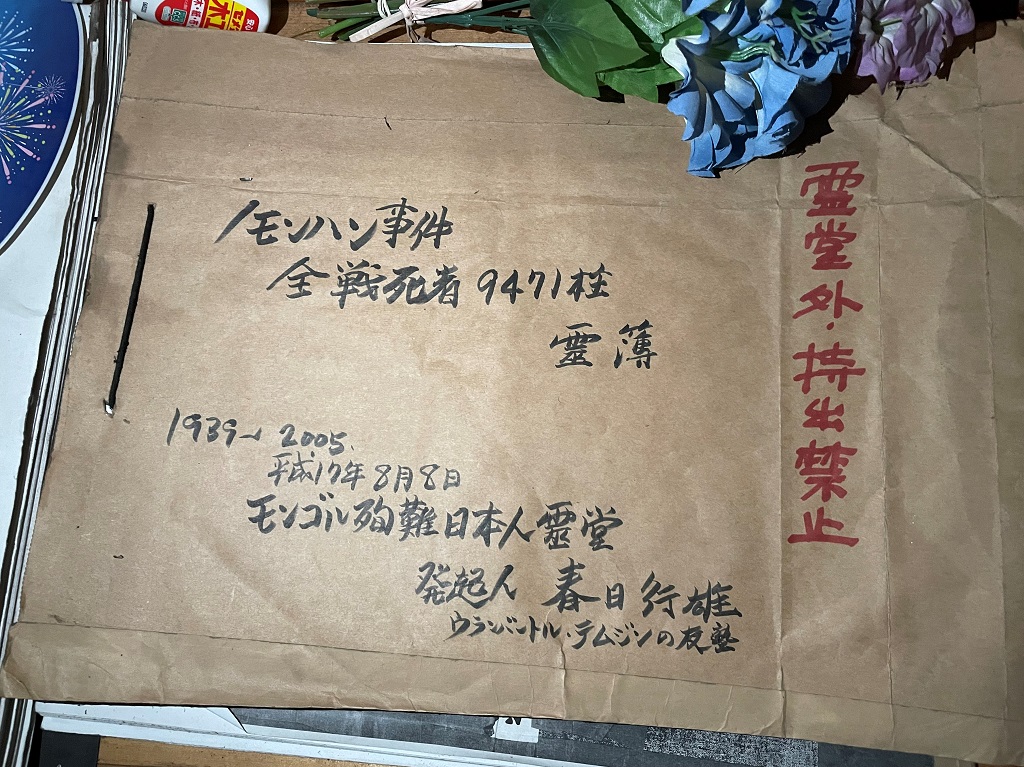 ノモンハン事件
全戦死者9471柱
霊簿
1939〜2005.
平成17年8月8日
モンゴル殉難日本人霊堂
発起人 春日行雄
ウランバートル・テムジンの友塾
霊堂外・持出禁止